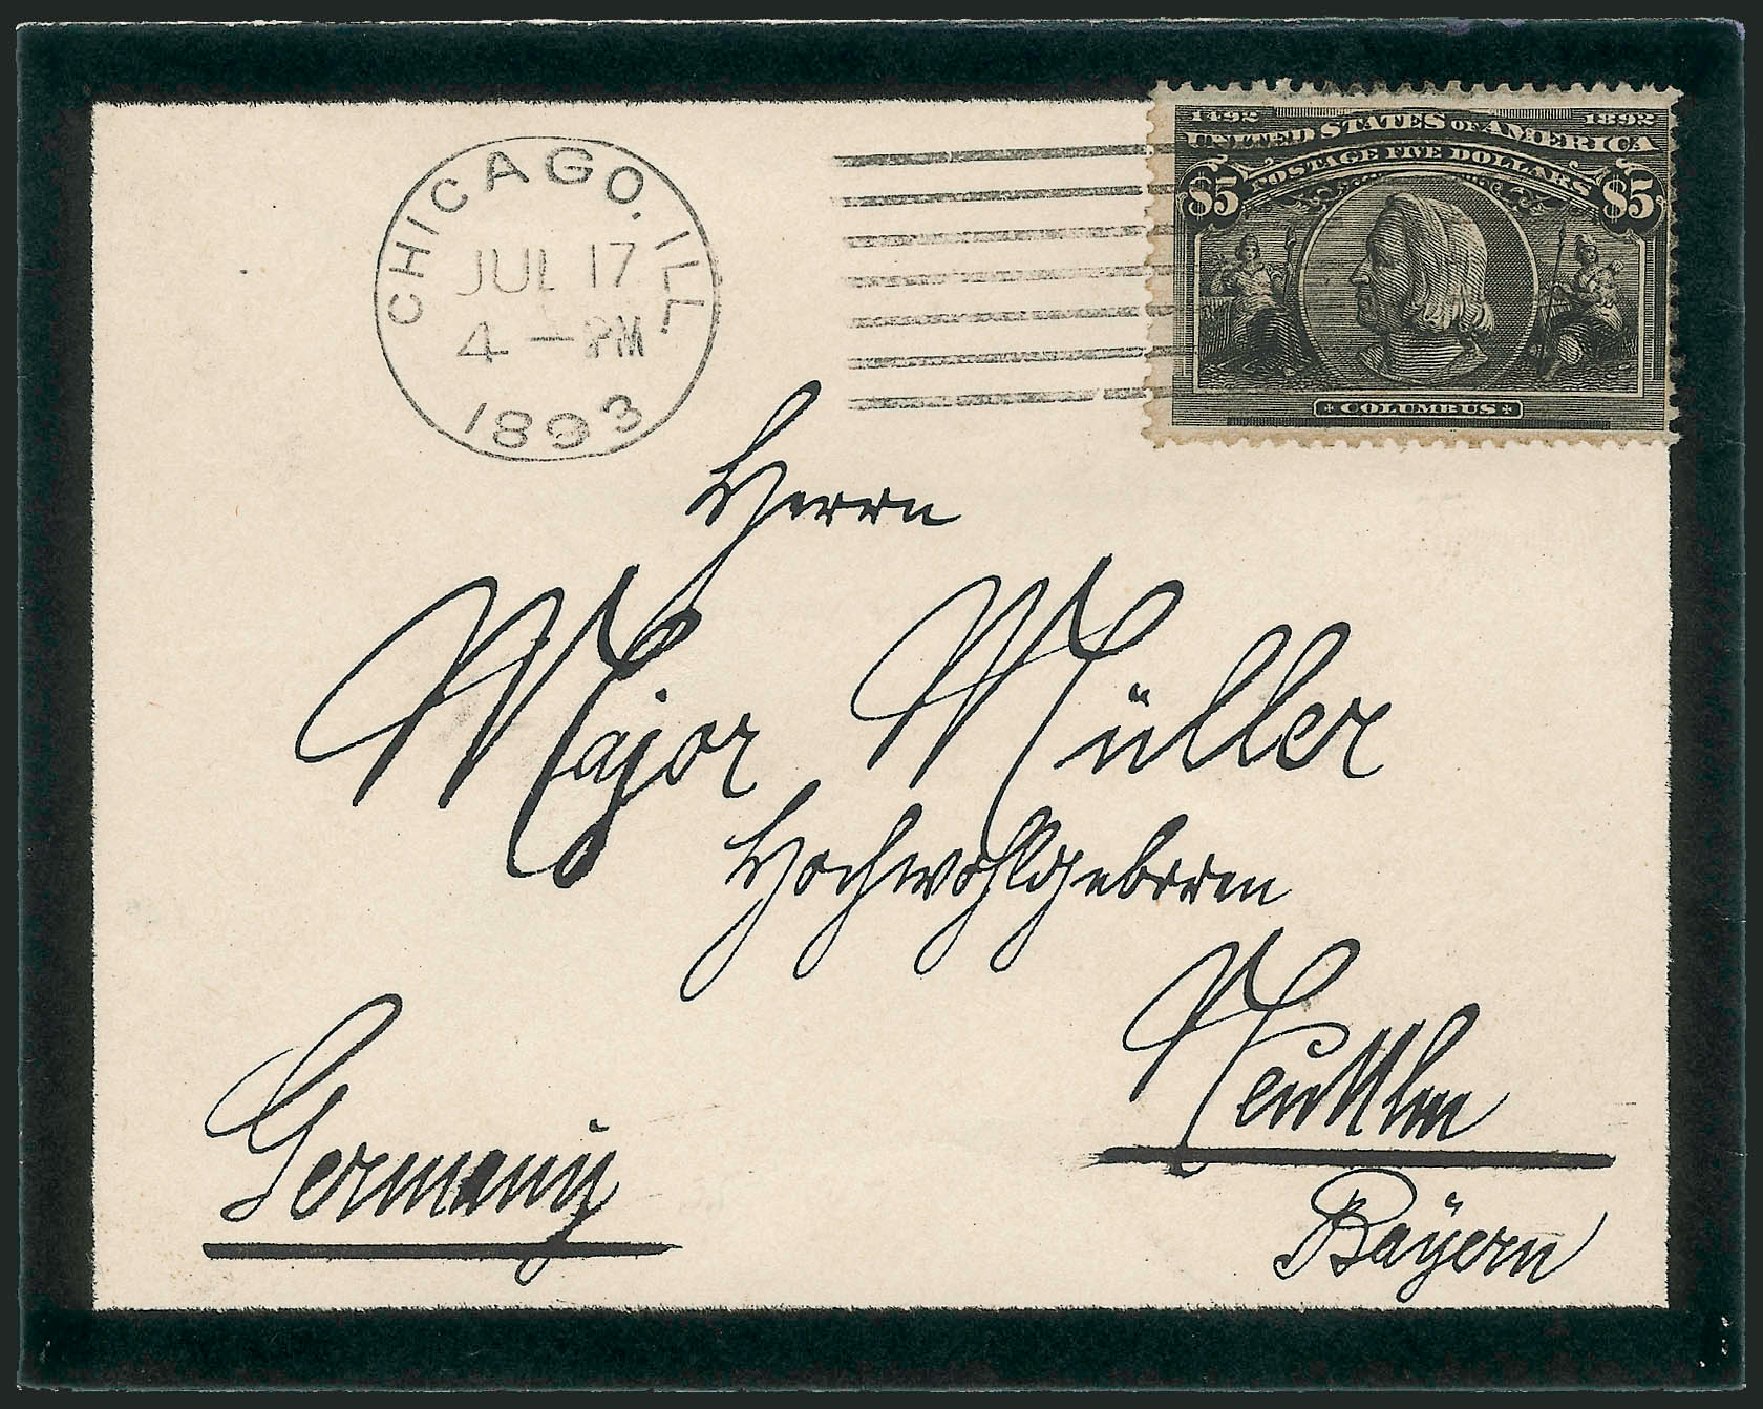 CHICAGO, ILL.
JUL 17
4 - PM
1893
1492 1892
UNITED STATES OF AMERICA
POSTAGE FIVE DOLLARS
$5 $5
COLUMBUS
Herrn
Major Müller
Hochwohlgeboren
Germany
Bayern